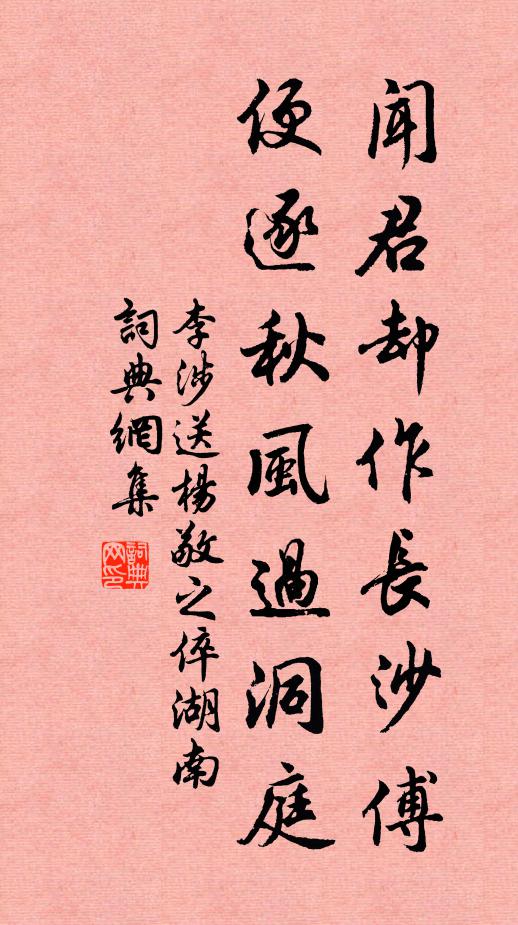 聞君却作長沙傅
便逐秋風過洞庭
李涉送楊敬之倅湖南
詞典網集
詞典網印